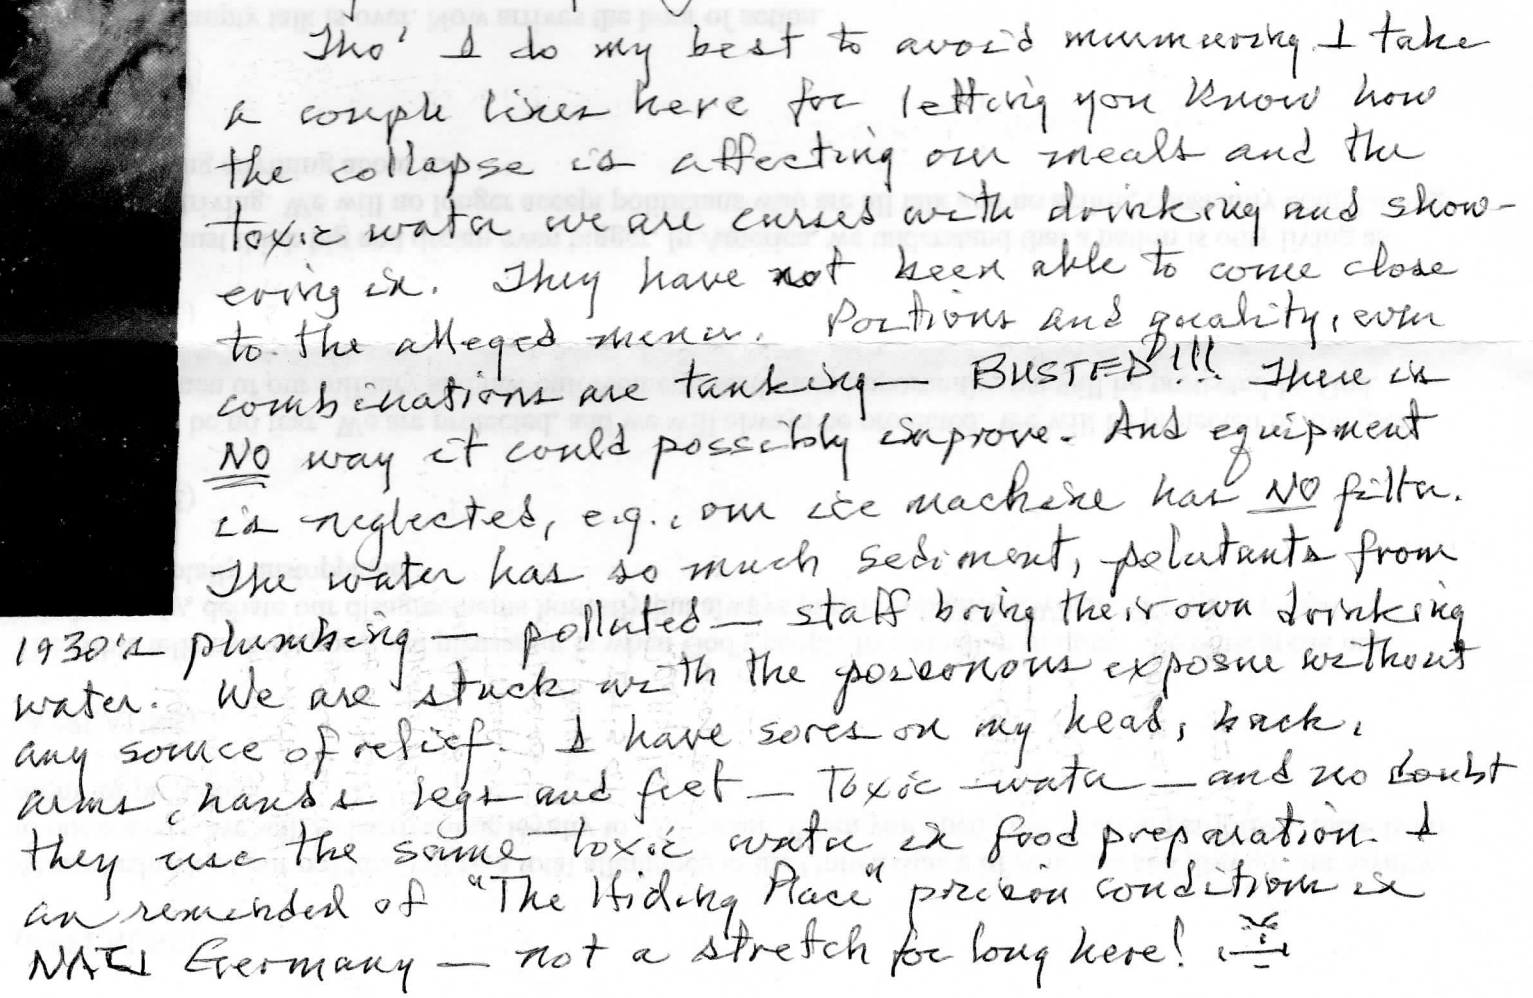 Tho' I do my best to avoid murmuring I take
a couple lines here for letting you know how
the collapse is affecting our meals and the
toxic water we are cursed with drinking and show-
ering in. They have not been able to come close
to the alleged menu. Portions and quality, even
combinations are tanking BUSTED!!! There is
NO way it could possibly improve. And equipment
is neglected, e.g., our ice machine has NO filter.
The water has so much sediment, polutants from
1930's plumbing — polluted — staff bring their own drinking
water. We are stuck with the poisonous exposure without
any source of relief. I have sores on my head, back,
arms, hands legs and feet — Toxic water — and no doubt
they use the same toxic water in food preparation. I
am reminded of "The Hiding Place" prison conditions in
NAZI Germany — not a stretch for long here!